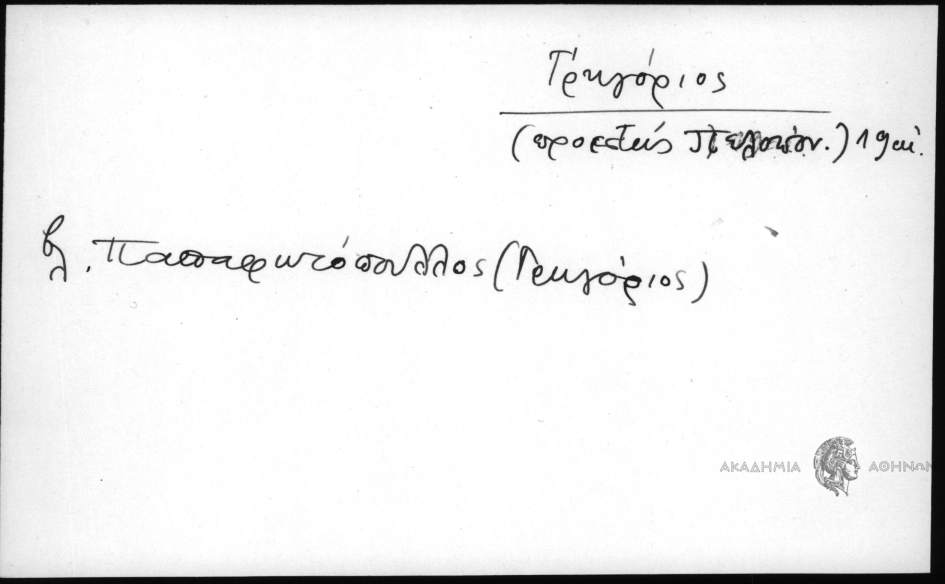 Γρηγόριος
(προεστώς Πελοπόν.) 19 αἰ.
βλ. Παπαφωτόπουλλος (Γρηγόριος)
ΑΚΑΔΗΜΙΑ ΑΘΗΝΩΝ